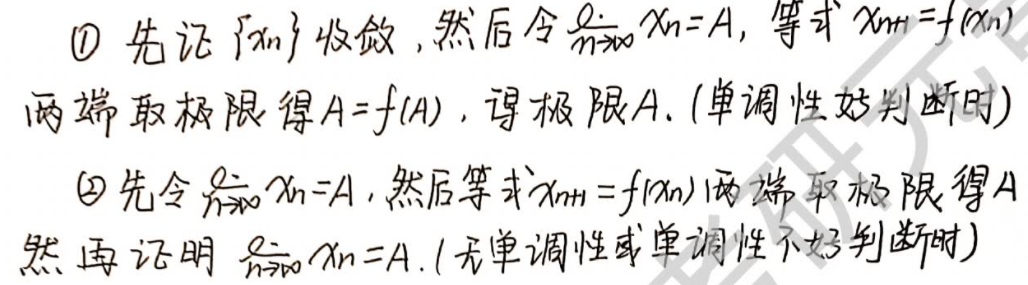 ① 先证{xn}收敛,然后令 lim n→∞ xn=A, 等式 xn+1=f(xn)
两端取极限得A=f(A),得极限A.(单调性好判断时)
② 先令 lim n→∞ xn=A,然后等式xn+1=f(xn)两端取极限得A
然再证明 lim n→∞ xn=A.(无单调性或单调性不好判断时)
考研